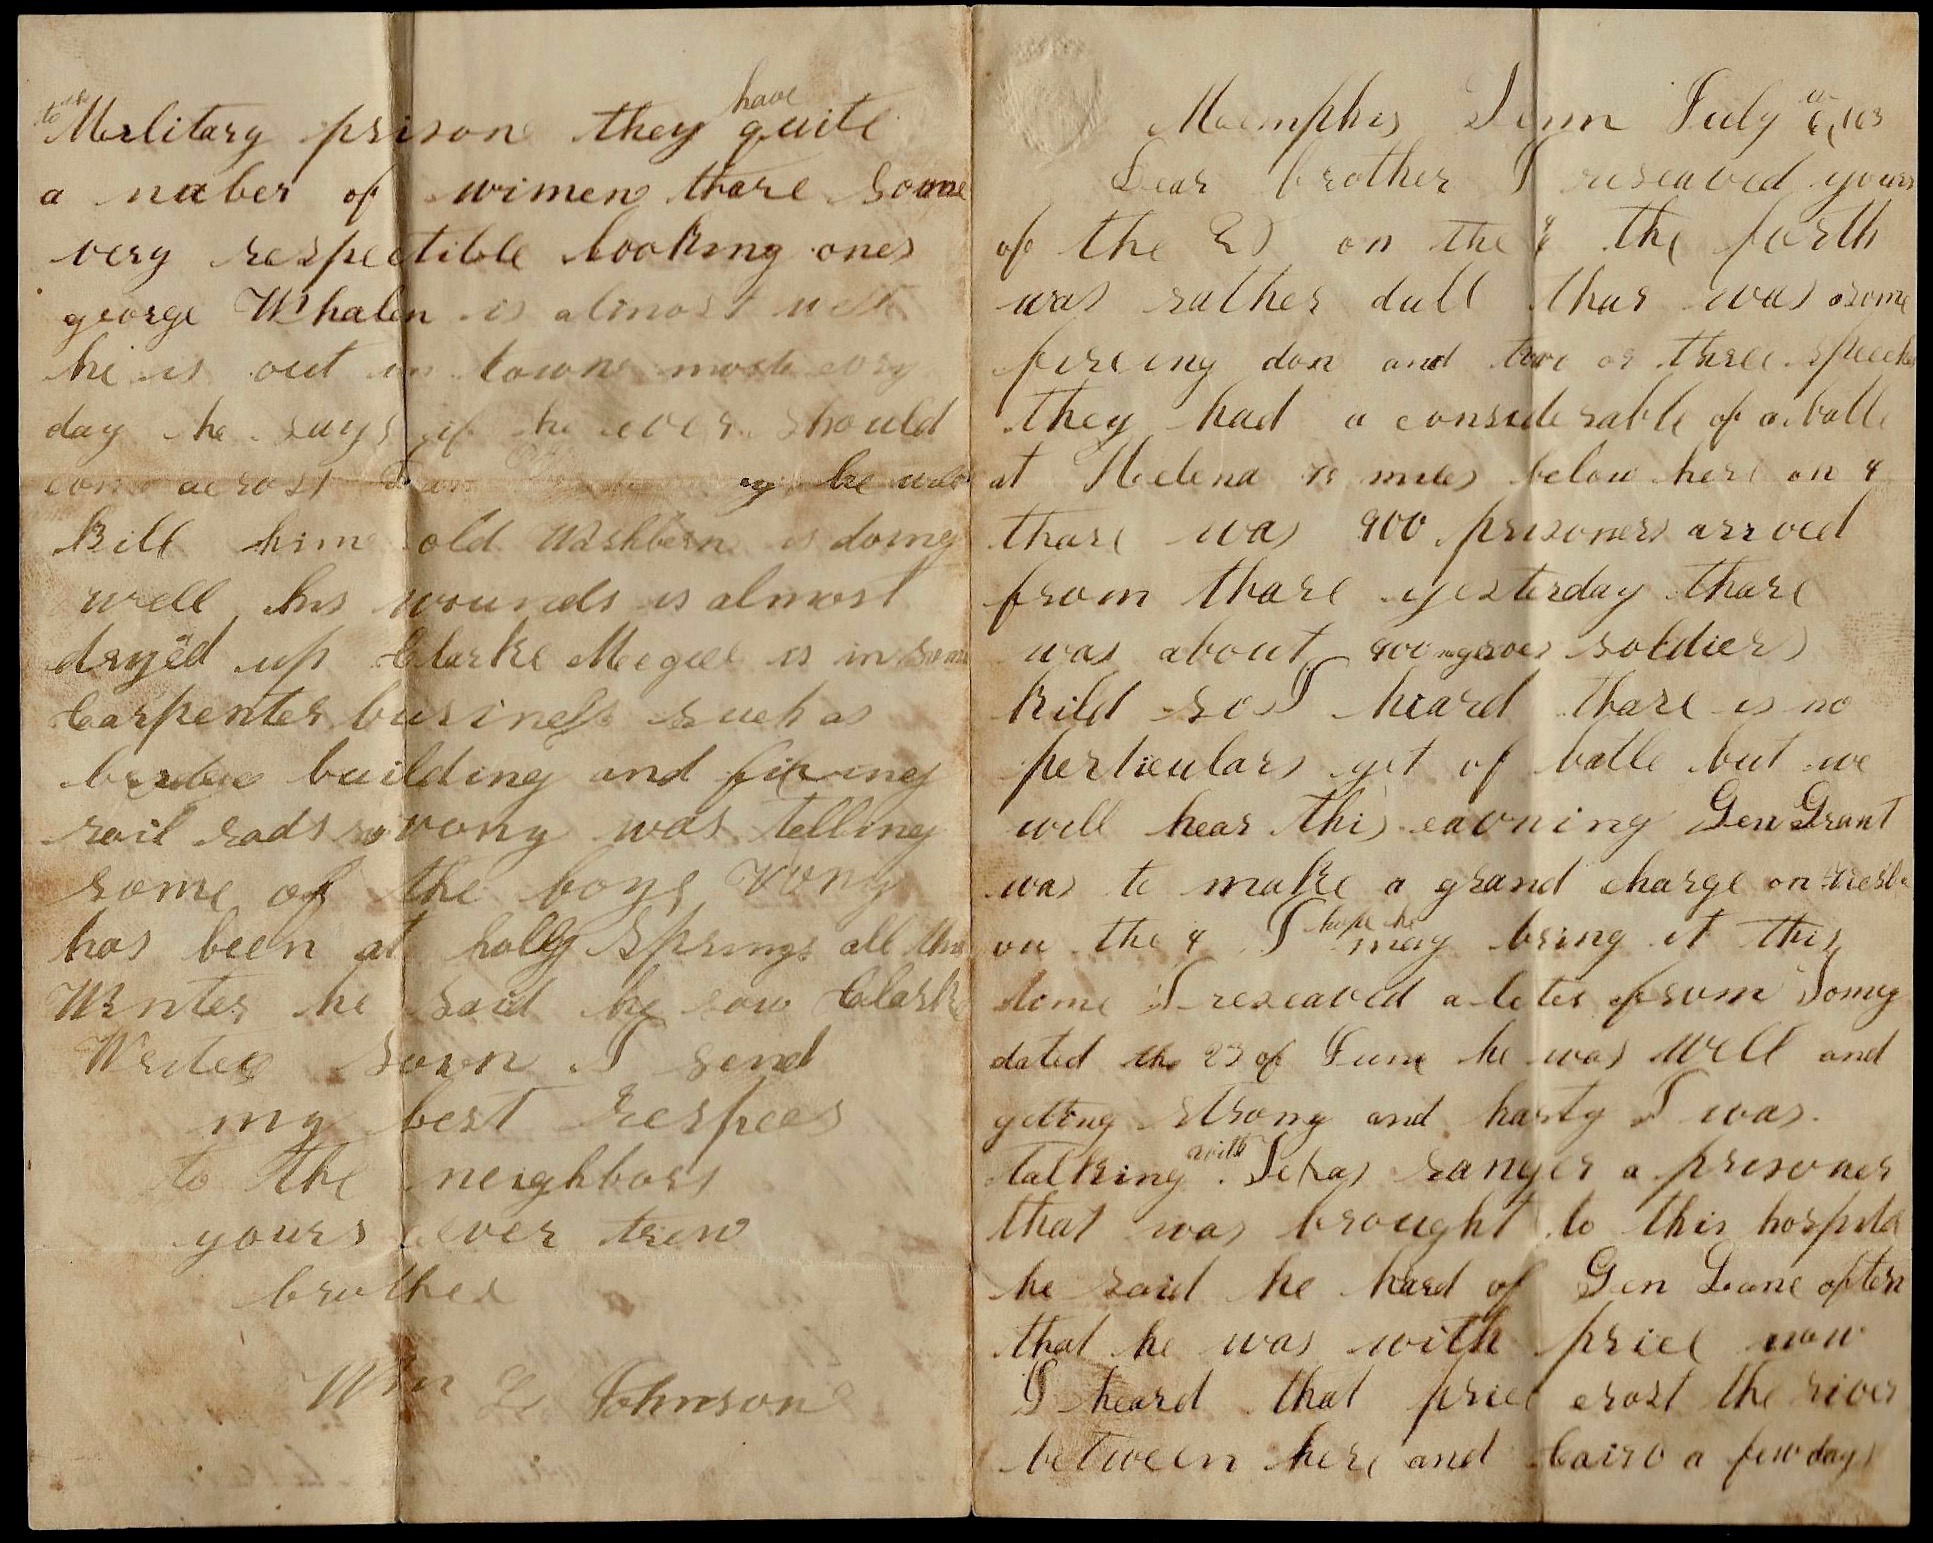 Maemphis Tenn July 6, 163
Dear brother I reseaved yours
of the 2) on the 4 the forth
was rather dull thar was some
fireing don and two or three speeches
they had a considerable of a batle
at Helena 75 miles below here on 4
thare was 900 prisoners arrved
from thare yesterday thare
was about 400 ngeroes soldiers
kild so I heard thare is no
perticulars yet of batle but we
will hear this eavning Gen Grant
was to make a grand charge on
on the 4 I hope he may bring it this
time I reseaved a leter from Tomy
dated the 23 of June he was well and
getting strong and harty I was
talking with Texas ranger a prisoner
that was brought to this hospital
he said he heard of Gen Lane often
that he was with price now
I heard that price crost the river
between here and Cairo a few days
to the Melitary prison they have quite
a nuber of wimen thare some
very respectible looking ones
george Whalen is almost well
he is out in town most evry
day he says if he ever should
come acrost Dan he will
kill him old Washbern is doing
well his wounds is almost
dryed up Clarke Megee is in some
Carpenter business such as
bridge building and fixing
rail rads so vony was telling
some of the boys Vony
has been at holly Springs all this
Winter he said he saw Clark
Writee soon I send
my best respees
to the neighbors
yours ever trew
brother
Wm L Johnson